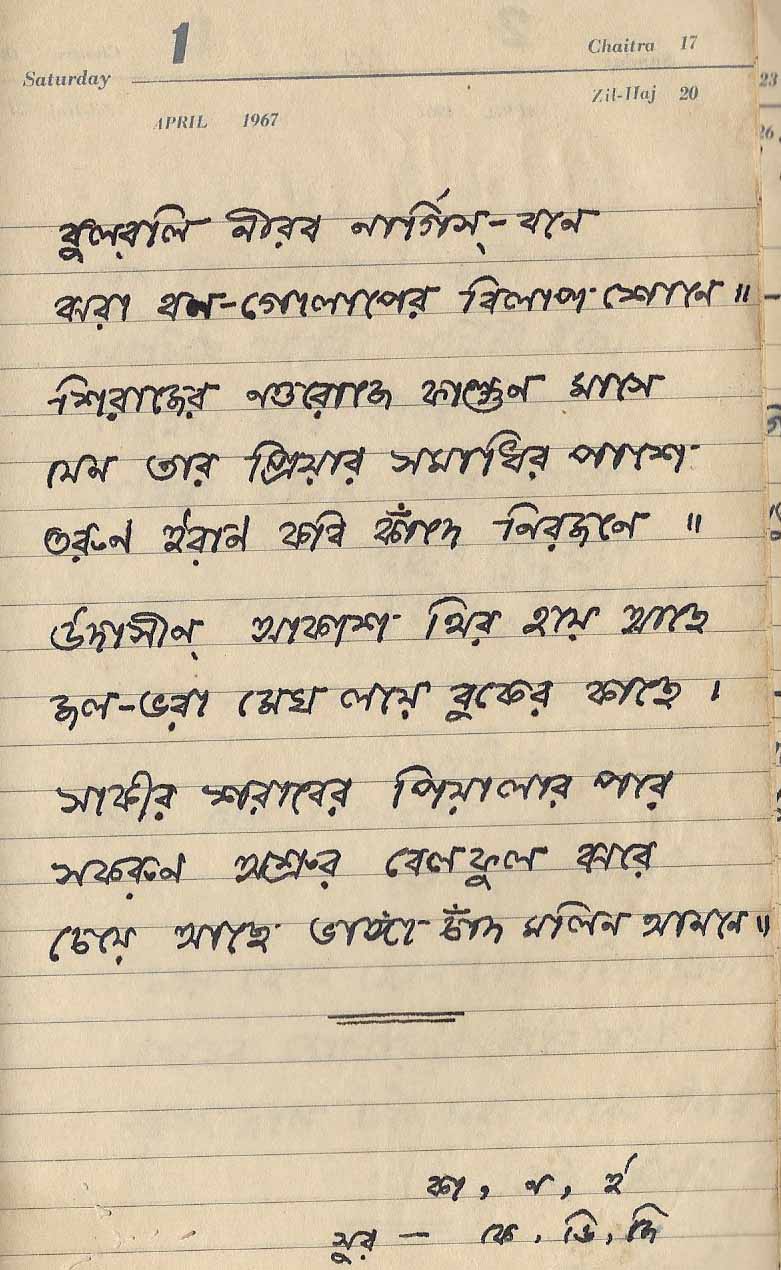 1
Chaitra 17
Saturday
Zil-Haj 20
APRIL 1967
23
26
বুলবুলি নীরব নার্গিস্-বনে
ঝরা বন-গোলাপের বিলাপ শোনে॥
শিরাজের নওরোজে ফাল্গুন মাসে
যেন তার প্রিয়ার সমাধির পাশে
তরুন ইরান কবি কাঁদে নিরজনে ॥
উদাসীন্ আকাশ থির হয়ে আছে
জল-ভরা মেঘ লয়ে বুকের কাছে ।
সাকীর শরাবের পিয়ালার পরে
সকরুন অশ্রুর বেলফুল ঝরে
চেয়ে আছে ভাঙ্গা চাঁদ মলিন আননে॥
কা, ন, ই
সুর — কে, ডি, দি